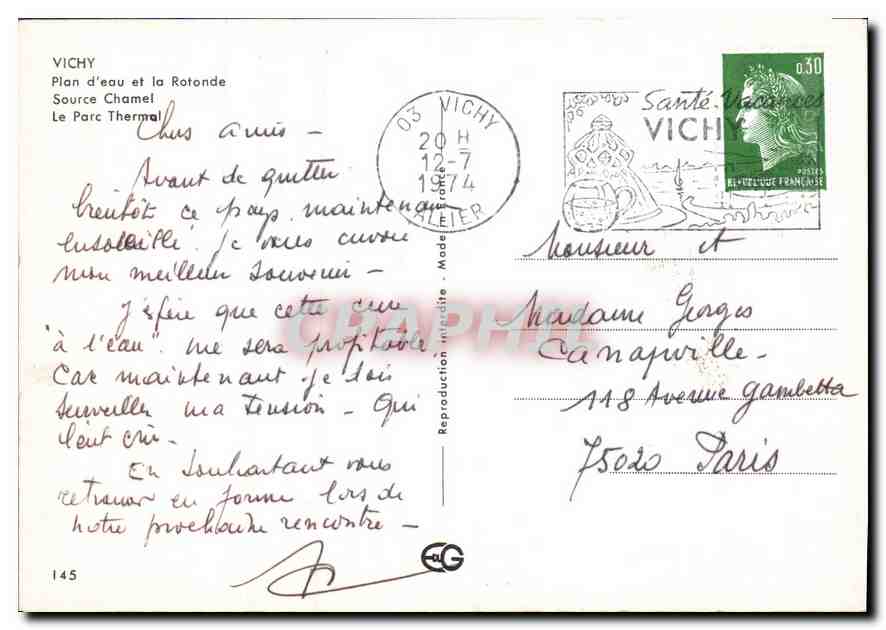 VICHY
Plan d'eau et la Rotonde
Source Chamel
Le Parc Thermal
Chers amis –
Avant de quitter
bientôt ce pays, maintenant
ensoleillé, je vous envoie
mon meilleur souvenir –
J'espère que cette cure
"à l'eau" me sera profitable.
Car maintenant je dois
surveiller ma tension – Qui
l'eut cru –
En souhaitant vous
retrouver en forme lors de
notre prochaine rencontre –
145
EDUG
Reproduction interdite - Made in France
03 VICHY
20 H
12-7
1974
ALLIER
Santé. Vacances
VICHY
0,30
POSTES
REPUBLIQUE FRANÇAISE
Monsieur et
Madame Georges
Canapville –
118 Avenue Gambetta
75020 Paris
CPAPHIL